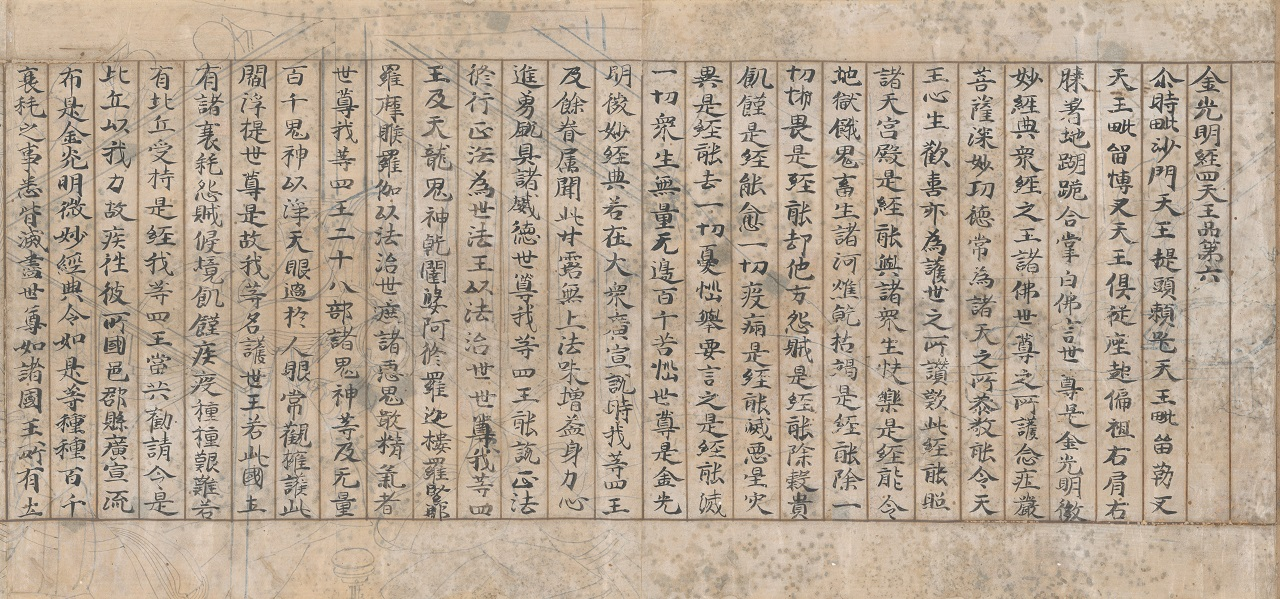 金光明經四天王品第六
尒時毗沙門天王提頭賴吒天王毗留勒叉
天王毗留博叉天王俱従座起偏袒右肩右
膝著地䠒跪合掌白佛言世尊是金光明微
妙經典衆經之王諸佛世尊之所護念莊嚴
菩薩深妙功徳常為諸天之所恭敬能令天
王心生歡喜亦為護世之所讃歎此經能照
諸天宮殿是經能與諸衆生快樂是經能令
地獄餓鬼畜生諸河燋乾枯竭是經能除一
切怖畏是經能却他方怨賊是經能除穀貴
飢饉是經能愈一切疫病是經能滅惡星灾
異是經能去一切憂惱舉要言之是經能滅
一切衆生無量无邊百千苦惱世尊是金光
明微妙經典若在大衆廣宣說時我等四王
及餘眷屬聞此甘露無上法味増益身力心
進勇銳具諸威徳世尊我等四王能說正法
修行正法為世法王以法治世世尊我等四
王及天龍鬼神乾闥婆阿修羅迦樓羅緊那
羅摩睺羅伽以法治世遮諸惡鬼噉精氣者
世尊我等四王二十八部諸鬼神等及无量
百千鬼神以淨天眼過於人眼常觀擁護此
閻浮提世尊是故我等名護世王若此國土
有諸衰耗怨賊侵境飢饉疾疫種種艱難若
有比丘受持是經我等四王當共勸請令是
比丘以我力故疾往彼所國邑郡縣廣宣流
布是金光明微妙經典令如是等種種百千
衰耗之事悉皆滅盡世尊如諸國王所有土